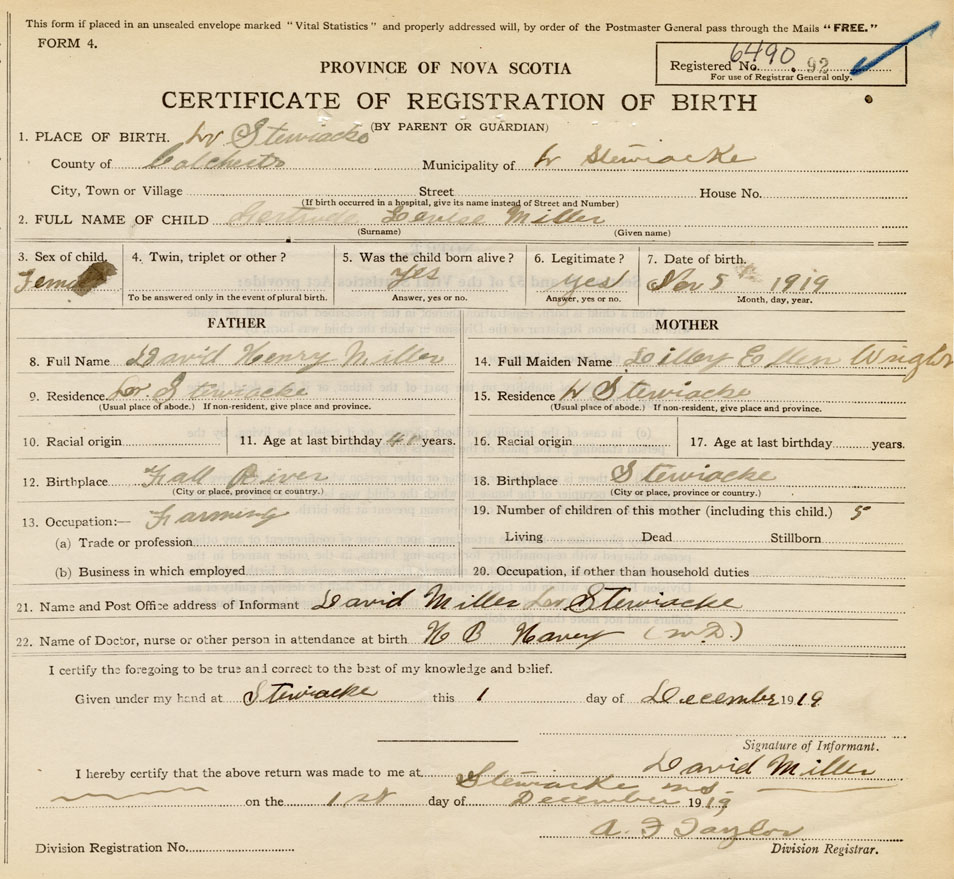 This form if placed in an unsealed envelope marked "Vital Statistics" and properly addressed will, by order of the Postmaster General pass through the Mails "FREE."
FORM 4.
Registered No. 6490. 92
For use of Registrar General only.
PROVINCE OF NOVA SCOTIA
CERTIFICATE OF REGISTRATION OF BIRTH
(BY PARENT OR GUARDIAN)
1. PLACE OF BIRTH. Lr Stewiacke
County of Colchester Municipality of Lr Stewiacke
City, Town or Village Street House No.
(If birth occurred in a hospital, give its name instead of Street and Number)
2. FULL NAME OF CHILD Gertrude Louise Miller
(Surname) (Given name)
3. Sex of child. 4. Twin, triplet or other? 5. Was the child born alive? 6. Legitimate? 7. Date of birth.
Female Yes Yes Nov 5 1919
To be answered only in the event of plural birth. Answer, yes or no. Answer, yes or no. Month, day, year.
FATHER MOTHER
8. Full Name David Henry Miller 14. Full Maiden Name Lilley Ellen Wright
9. Residence. Lr. Stewiacke 15. Residence Lr Stewiacke
(Usual place of abode.) If non-resident, give place and province. (Usual place of abode.) If non-resident, give place and province.
10. Racial origin 11. Age at last birthday years. 16. Racial origin 17. Age at last birthday years.
12. Birthplace Fall River 18. Birthplace Stewiacke
(City or place, province or country.) (City or place, province or country.)
13. Occupation:— Farming 19. Number of children of this mother (including this child.) 5
(a) Trade or profession Living Dead Stillborn
(b) Business in which employed 20. Occupation, if other than household duties
21. Name and Post Office address of Informant David Miller Lr Stewiacke
22. Name of Doctor, nurse or other person in attendance at birth H B Havey (M.D.)
I certify the foregoing to be true and correct to the best of my knowledge and belief.
Given under my hand at Stewiacke this 1 day of December 1919
Signature of Informant.
David Miller
I hereby certify that the above return was made to me at Stewiacke N.S.
on the 1st day of December 1919
A. F Taylor
Division Registration No. Division Registrar.